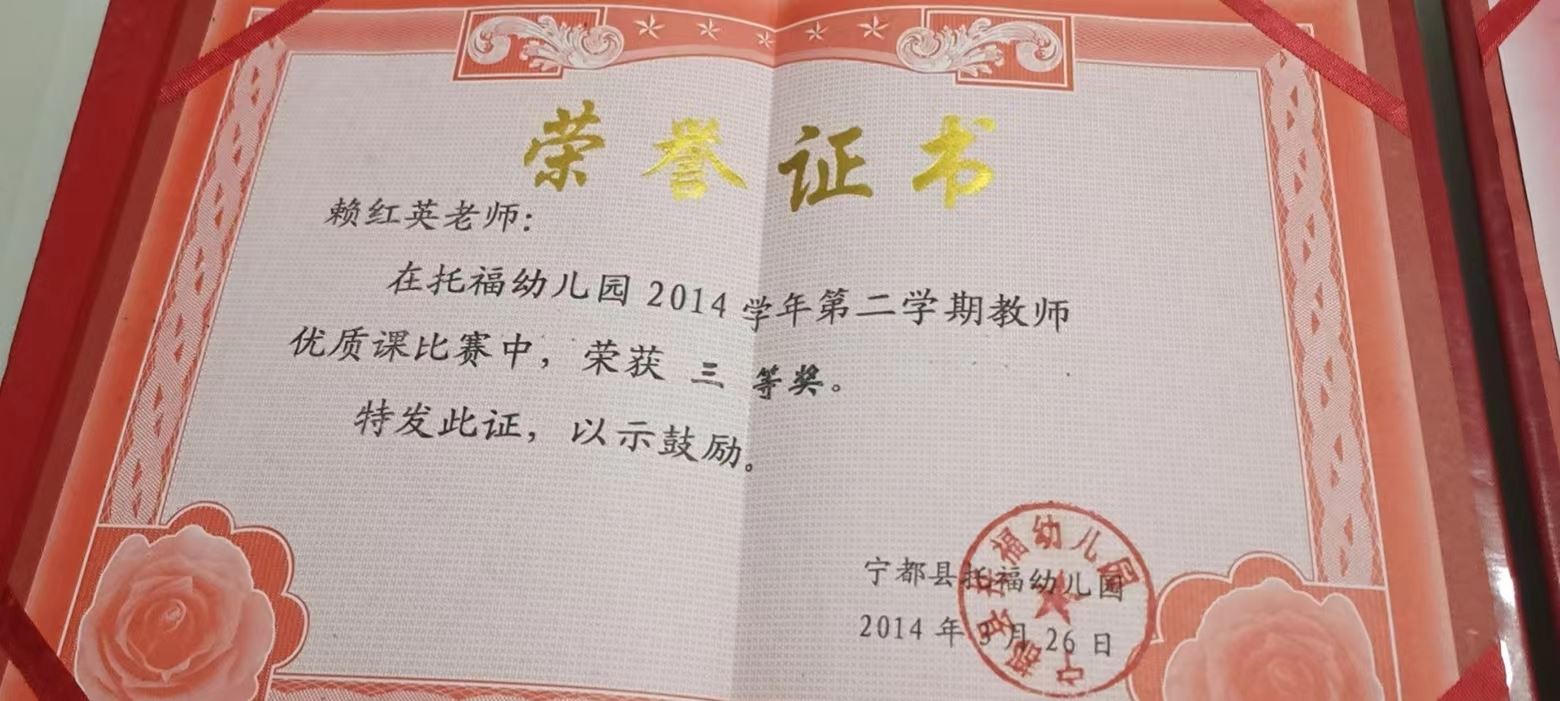 荣誉证书
赖红英老师：
在托福幼儿园2014学年第二学期教师
优质课比赛中，荣获 三 等奖。
特发此证，以示鼓励。
宁都县托福幼儿园
2014年3月26日
宁都县托福幼儿园